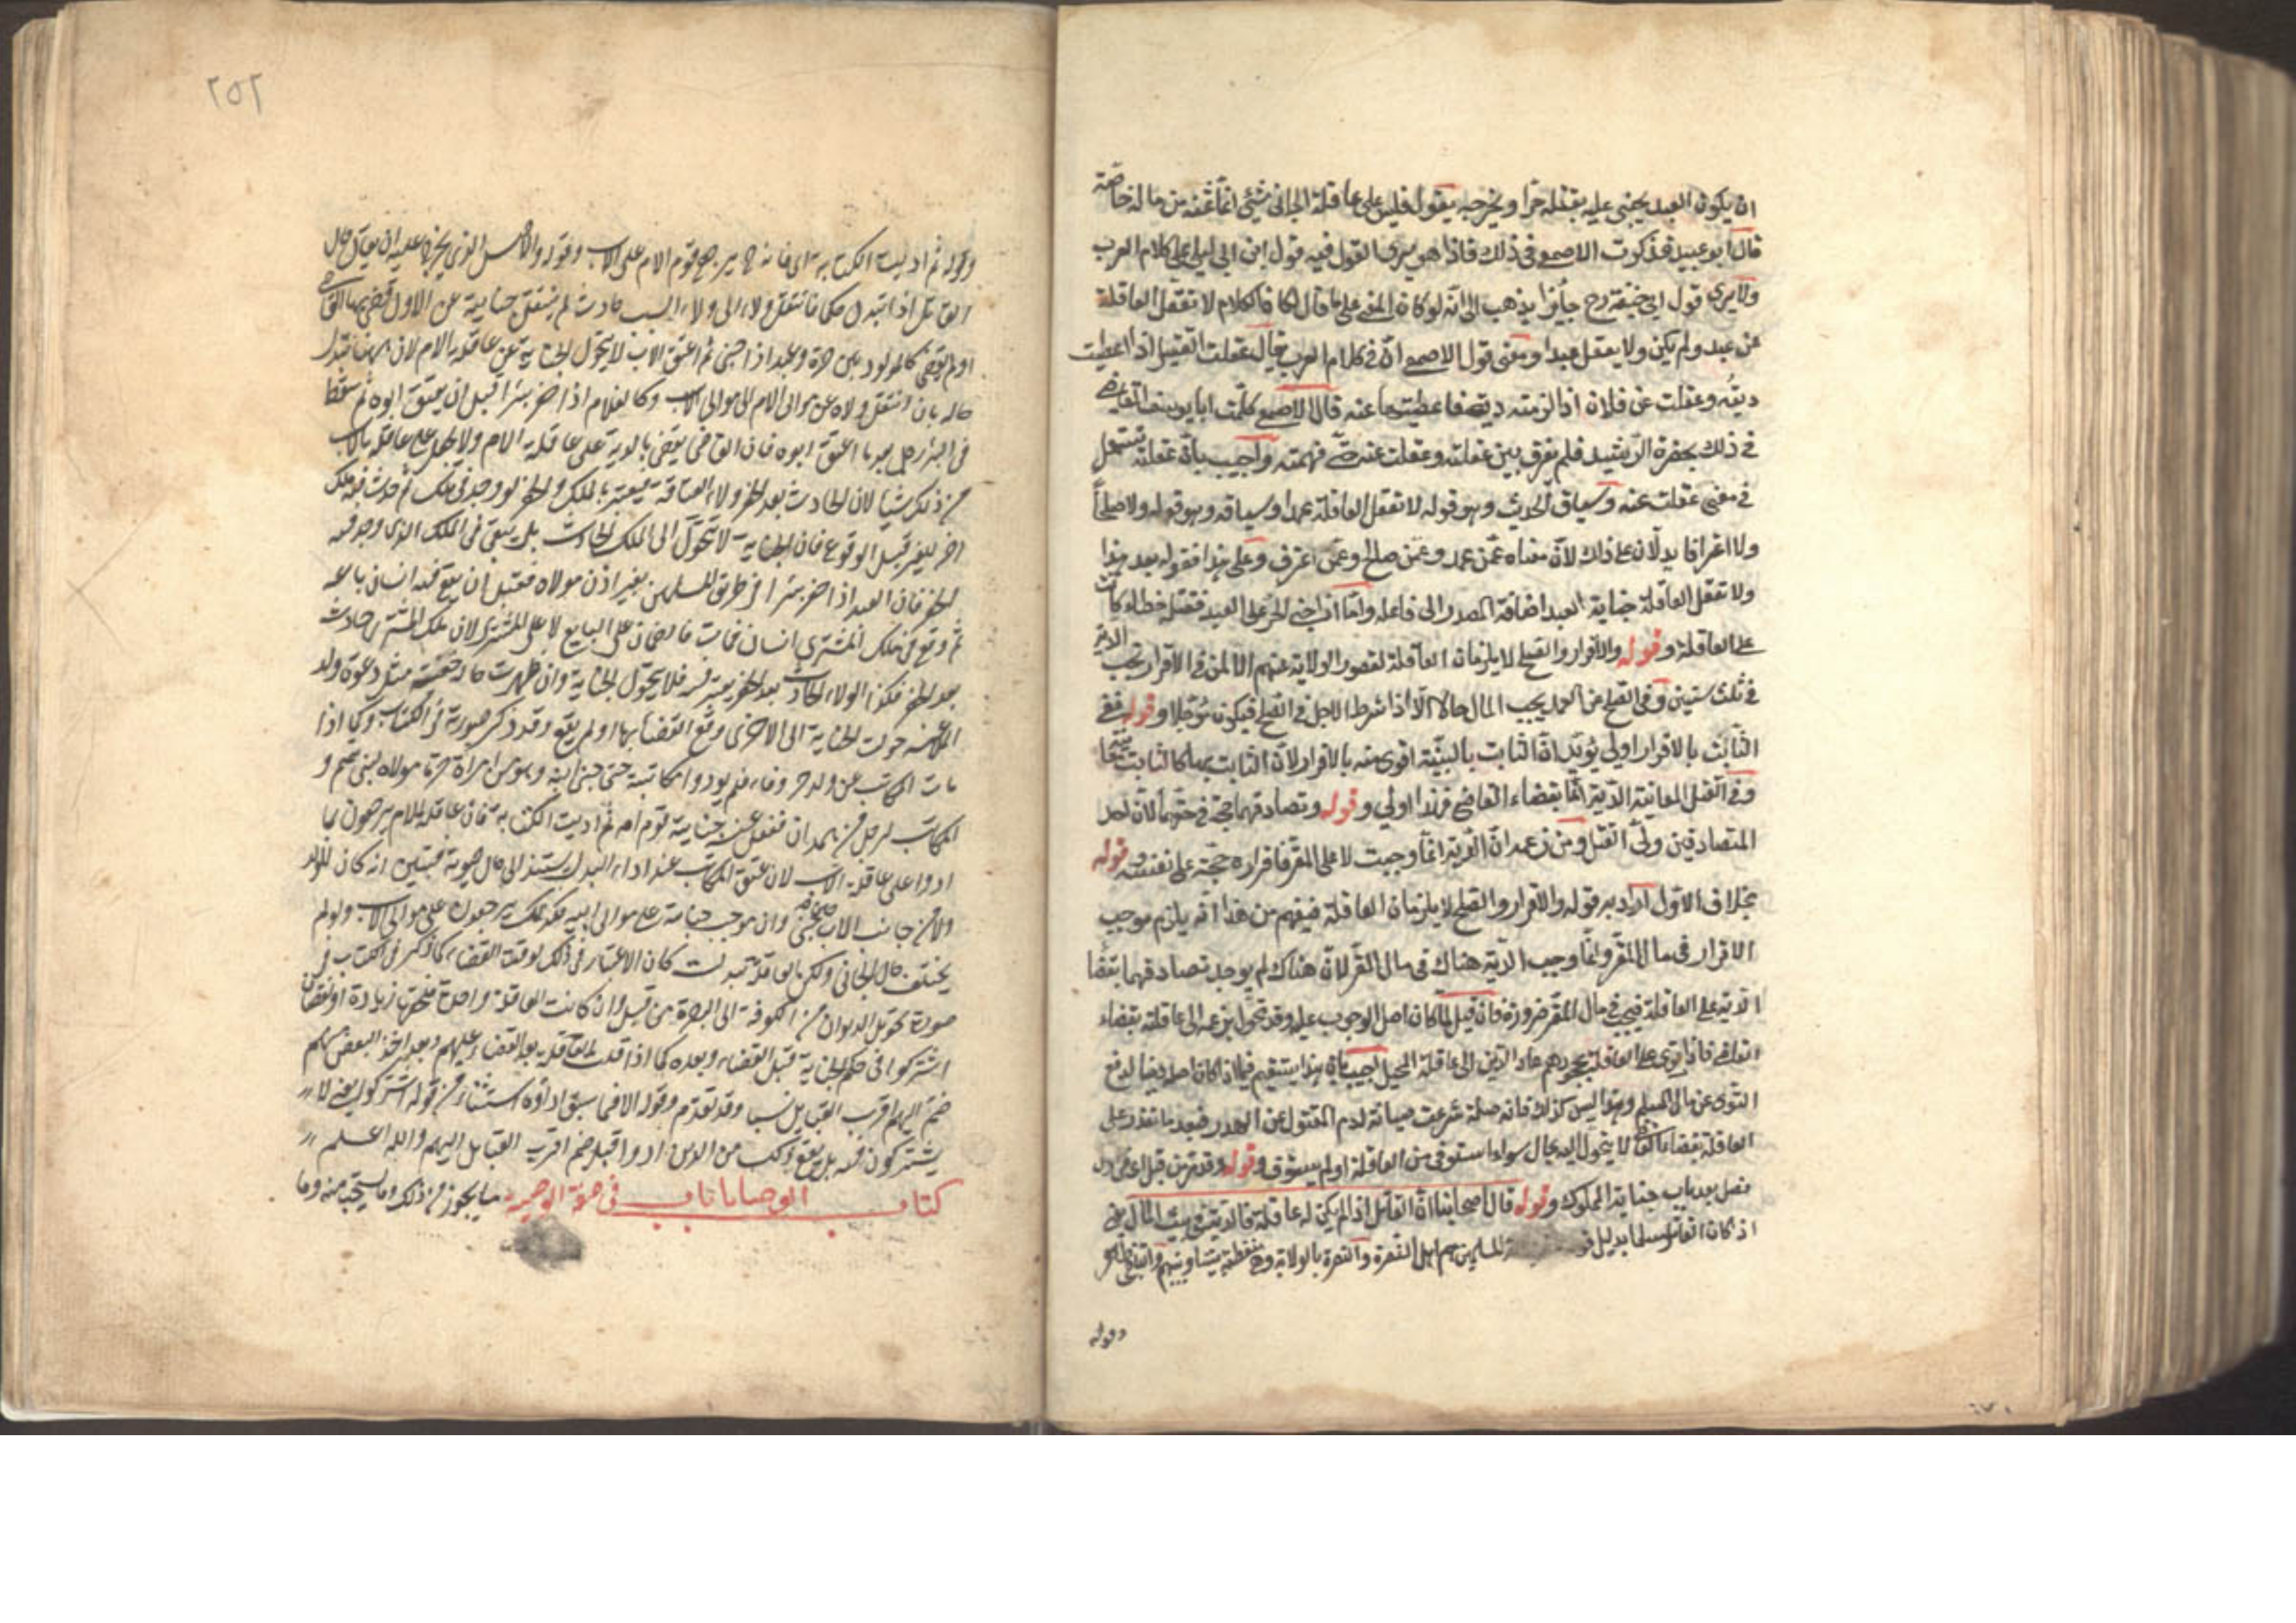 ان يكون العبد يجنى عليه يقتله حرا او يجرحه يقول فليس على عاقلة الجانى شئ انما ثمنه من ماله خاصة
قال ابو عبيد فذكرت الاصمعى فى ذلك فاذا هو يرى القول فيه قول ابن ابى ليلى على كلام العرب
ولا يرى قول ابى حنيفة رح جايزا يذهب الى انه لو كان المعنى على ما قال لكان الكلام لا تعقل العاقلة
عن عبد ولم يكن ولا يعقل عبدا ومعنى قول الاصمعى ان فى كلام العرب يقال عقلت القتيل اذا اعطيت
ديته وعقلت عن فلان اذا لزمته دية فاعطيتها عنه قال الاصمعى كلمت ابا يوسف القاضى
فى ذلك بحضرة الرشيد فلم يفرق بين عقلته وعقلت عنه حتى فهمته واجيب بان عقلته تستعمل
فى معنى عقلت عنه وسياق الحديث وهو قوله لا تعقل العاقلة عمدا وسياقه وهو قوله ولا صلحا
ولا اعترافا يدلان على ذلك لان معناه عمن عمد وعمن صالح وعمن اعترف وعلى هذا فقوله بعد هذا
ولا تعقل العاقلة جناية العبد اضافة المصدر الى فاعله واما اذا جنى الحر على العبد فقتله خطاء كانت
على العاقلة وقوله والاقرار والصلح لا يلزمان العاقلة لقصور الولاية عنهم الا ان فى الاقرار تجب الدية
فى ثلث سنين وفى الصلح عن العمد يجب المال حالا الا اذا شرط الاجل فى الصلح فيكون مؤجلا وقوله ففى
الثابت بالاقرار اولى يؤيد ان الثابت بالبينة اقوى منه بالاقرار لان الثابت بها كالثابت معاينة
وفى القتل المعاينة الدية انما بقضاء القاضى فهذا اولى وقوله وتصادقهما حجة فى حقهما لان احد
المتصادقين ولى القتل ومن زعمه ان الدية انما وجبت لا على المقر فاقراره حجة على نفسه وقوله
بخلاف الاول اراد به قوله والاقرار والصلح لا يلزمان العاقلة فيفهم من هذا انه يلزم موجب
الاقرار فى مال المقر وانما وجب الدية هناك فى مال المقر لان هناك لم يوجد تصادقهما بقضاء
الدية على العاقلة فيجب فى مال المقر ضرورة فان قيل لما كان اصل الوجوب عليه وقد تحول بزعمه الى عاقلته بقضاء
القاضى فاذا توى على العاقلة بجحودهم عاد الدين الى عاقلة المحيل اجيب بان هذا يستقيم فيما اذا كان اصله دينا لدفع
التوى عن مال المسلم وهذا ليس كذلك فانه صلة شرعت صيانة لدم المقتول عن الهدر فبعد ما تقرر على
العاقلة بقضاء القاضى لا يتحول اليه بحال سواء استوفى من العاقلة او لم يستوف وقوله وقد مر من قبل اى فى اول
فصل بعد باب جناية المملوك وقوله قال اصحابنا ان القاتل اذا لم يكن له عاقلة فالدية فى بيت المال يعنى
اذا كان القاتل مسلما بدليل المسلمين هم اهل النصرة والنصرة بالولاية وهى منقطعة
وقوله
٢٥٢
وقوله ثم اديت الكتابة اى فانه ح يرجع قوم الام على الاب وقوله والاصل الذى يخرج عليه ان يقال حال
القاتل اذا تبدل حكما فانتقل ولاءه الى ولاء بسبب حادث لم ينتقل جنايته عن الاول قضى بها القاضى
او لم يقض كالمولود بين حرة وعبد اذا جنى ثم اعتق الاب لا يتحول الجناية عن عاقلة الام لان ههنا تبدل
حاله بان انتقل ولاه عن موالى الام الى موالى الاب وكالغلام اذا حفر بئرا قبل ان يعتق ابوه ثم سقط
فى البئر رجل بعد ما اعتق ابوه فان القاضى يقضى بالدية على عاقلة الام ولا يجعل على عاقلة الاب
من ذلك شيا لان الحادث بعد الحفر ولاء العتاقة فيعتبر بالملك والحفر لو وجد فى ملك ثم حدث فيه ملك
اخر لغيره قبل الوقوع فان الجناية لا تتحول الى الملك الحادث بل يبقى فى الملك الذى وجد فيه
الحفر فان العبد اذا حفر بئرا فى طريق المسلمين بغير اذن مولاه فقبل ان يقع فيه انسان باعه
ثم وقع فى ملك المشترى انسان فمات فالضمان على البايع لا على المشترى لان ملك المشترى حادث
بعد الحفر فكذا الولاء الحادث بعد الحفر فلا يتحول الجناية وان ظهرت حالة خفية مثل دعوة ولد
الملاعنة حولت الجناية الى الاخرى وقع القضا بها او لم يقع وقد ذكر صورته فى الكتاب وكما اذا
مات المكاتب عن ولد حر ووفاء فلم يودوا مكاتبته حتى جنى ابنه وهو من امراة حرة مولاة لبنى تميم و
المكاتب لرجل من همدان فعقل عنه جنايته قوم امه ثم اديت الكتابة فان عاقلة الام يرجعون بما
ادوا على عاقلة الاب لان عتق المكاتب عند اداء البدل يستند الى حال حيوته فتبين انه كان للولد
ولاء من جانب الاب حين جنى وان موجب جنايته على موالى ابيه فكذلك يرجعون على موالى الاب ولو لم
يختلف حال الجانى ولكن العاقلة تبدلت كان الاعتبار فى ذلك لوقت القضاء كما ذكر فى الكتاب فى
صورة تحويل الديوان من الكوفة الى البصرة من قبل وان كانت العاقلة واحدة فلحقها زيادة او نقصان
اشتركوا فى حكم الجناية قبل القضاء وبعده كما اذا قلت العاقلة بعد القضاء عليهم وبعد اخذ البعض منهم
ضم اليهم اقرب القبايل نسبا وقد تقدم وقوله الا فيما سبق اداؤه استثناء من قوله اشتركوا يعنى لا
يشتركون فيه بل يقع ذلك من الذين ادوا قبل ضم اقرب القبايل اليهم والله اعلم
كتاب الوصايا باب فى صفة الوصية ما يجوز من ذلك وما يستحب منه وما